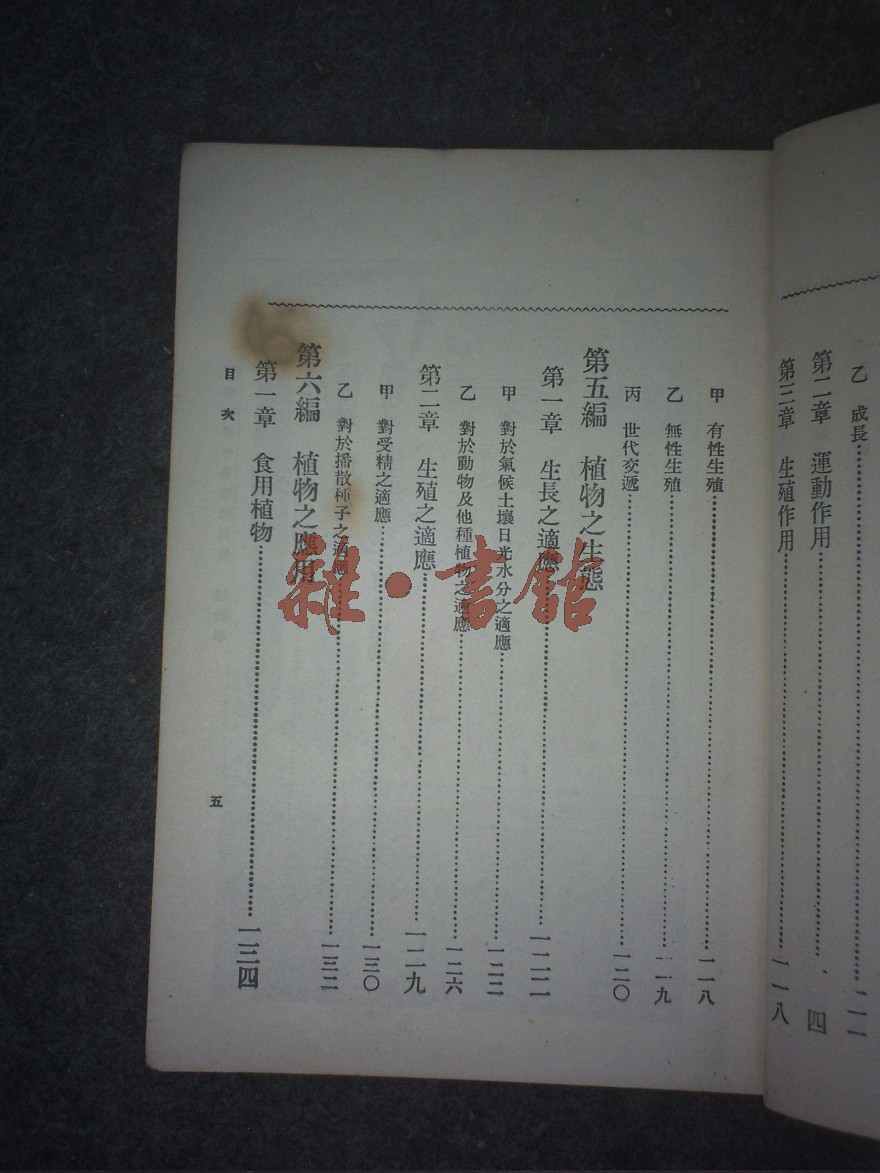 乙 成長……二一
第二章 運動作用……四
第三章 生殖作用……一一八
甲 有性生殖……一一八
乙 無性生殖……一一九
丙 世代交遞……一二〇
第五編 植物之生態
第一章 生長之適應……一二二
甲 對於氣候土壤日光水分之適應……一二二
乙 對於動物及他種植物之適應……一二六
第二章 生殖之適應……一二九
甲 對受精之適應……一三〇
乙 對於播散種子之適應……一三二
第六編 植物之應用
第一章 食用植物……一三四
目次
五
雜·書館